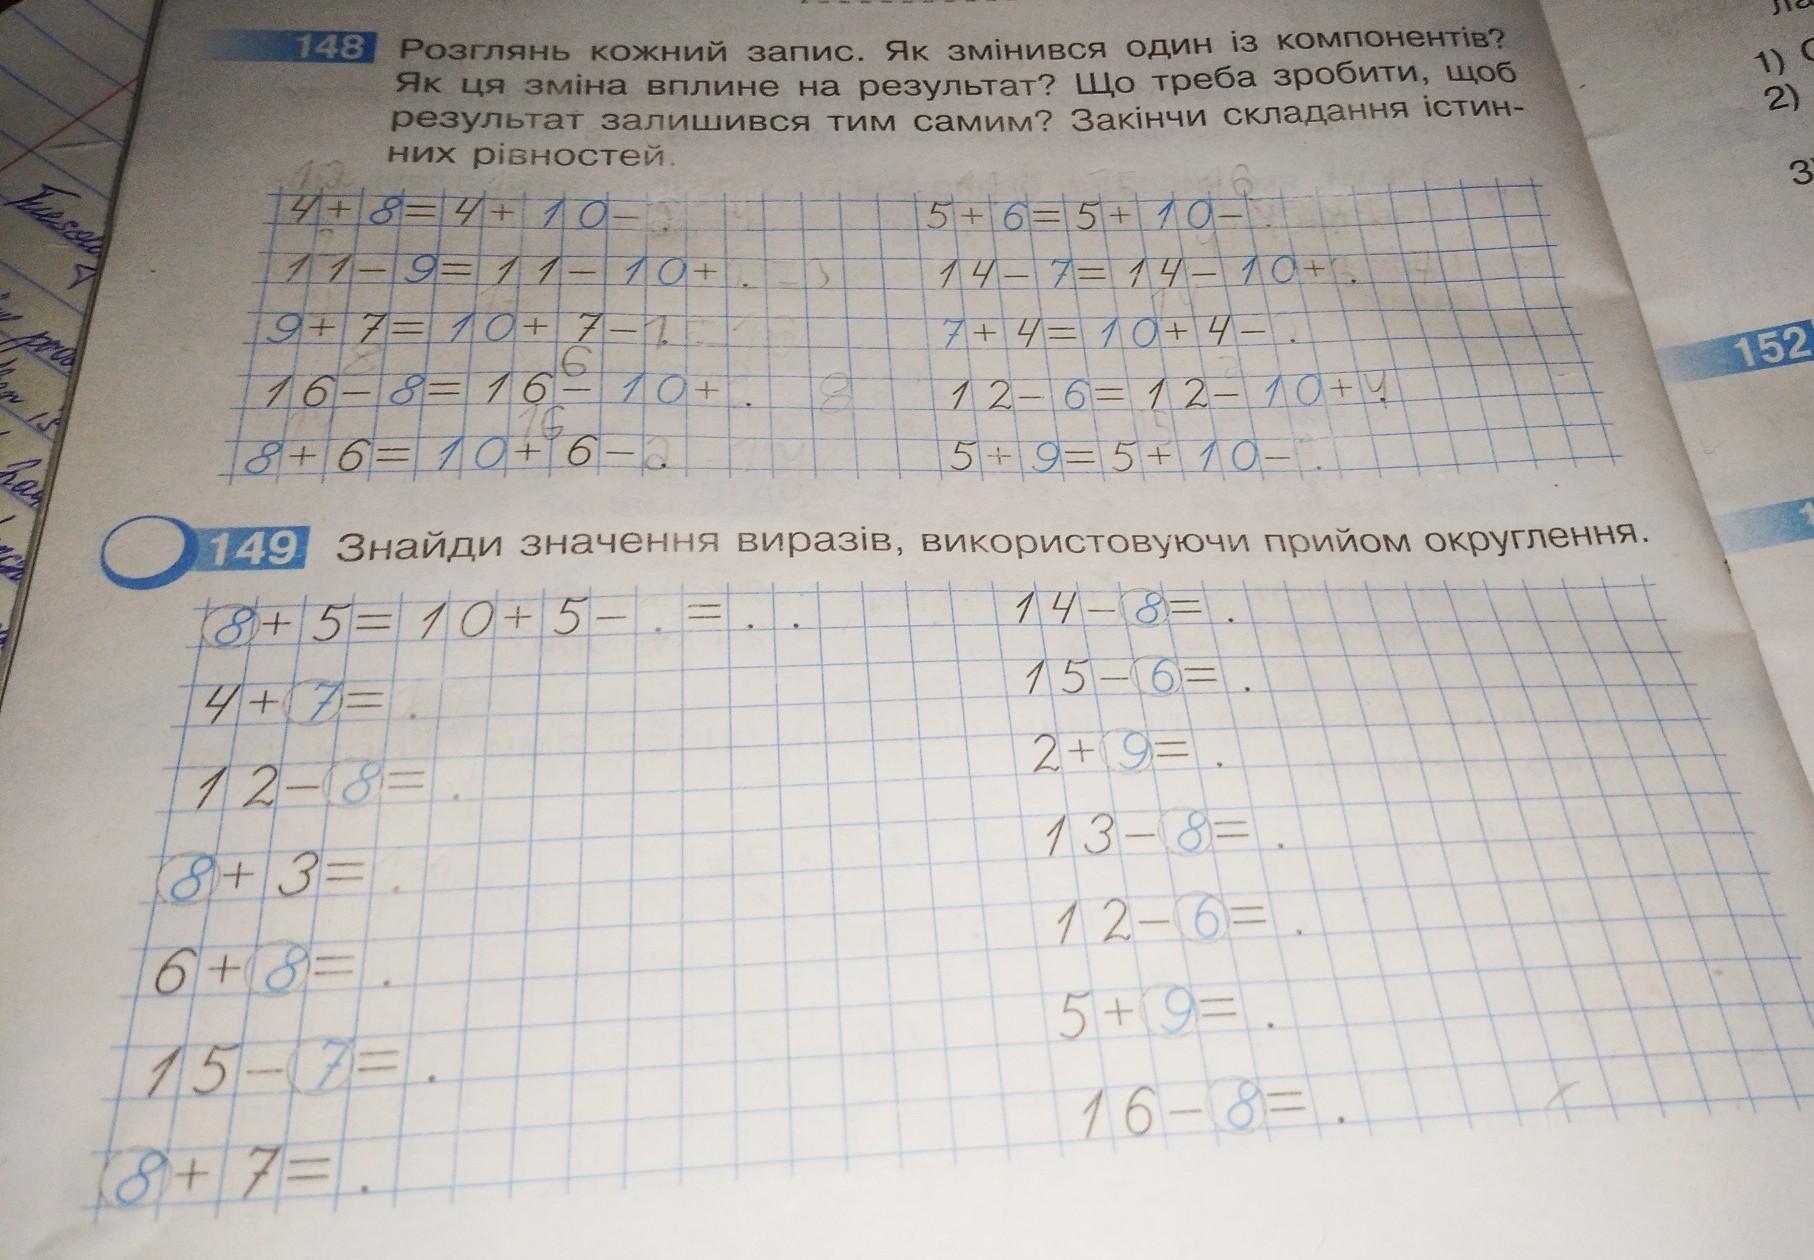 148 Розглянь кожний запис. Як змінився один із компонентів?
Як ця зміна вплине на результат? Що треба зробити, щоб
результат залишився тим самим? Закінчи складання істин-
них рівностей.
4+8=4+10-.
11-9=11-10+.
9+7=10+7-1.
16-8=16-10+. 8
8+6=10+6-2.
5+6=5+10-.
14-7=14-10+.
7+4=10+4-.
12-6=12-10+4.
5+9=5+10-.
149 Знайди значення виразів, використовуючи прийом округлення.
8+5=10+5-.=..
4+7=.
12-8=.
8+3=.
6+8=.
15-7=.
8+7=.
14-8=.
15-6=.
2+9=.
13-8=.
12-6=.
5+9=.
16-8=.
1)
2)
3)
152
Tuesday